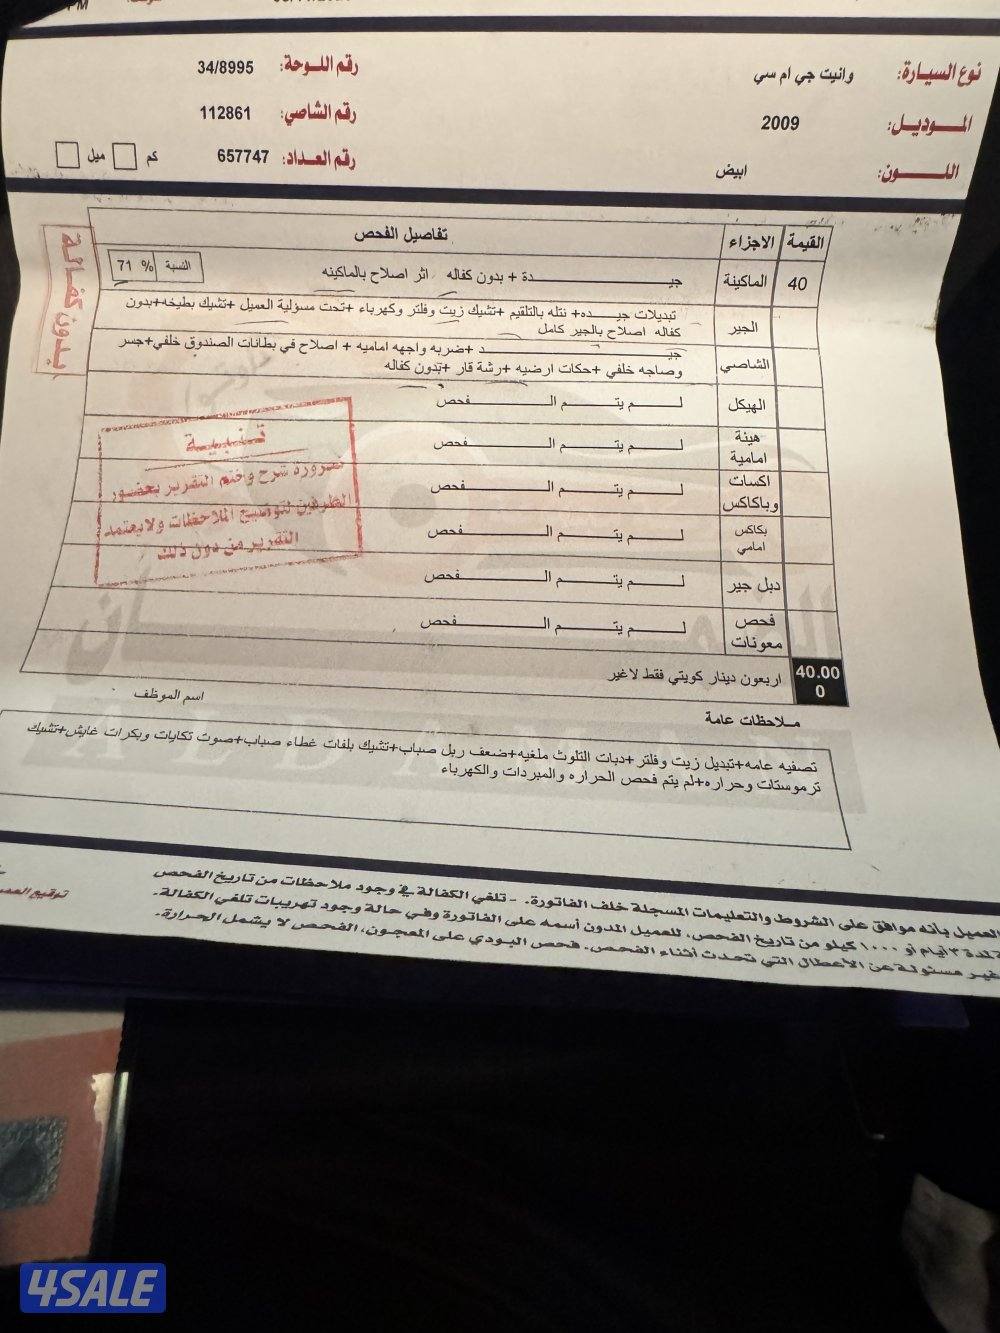 نوع السيارة: وانيت جي ام سي رقم اللوحة: 34/8995
الموديل: 2009 رقم الشاصي: 112861
اللون: ابيض رقم العداد: 657747 كم ميل
القيمة الاجزاء تفاصيل الفحص
40 الماكينة جيدة + بدون كفاله اثر اصلاح بالماكينه النسبة % 71
الجير تبديلات جيده+ نتله بالتلقيم +تشيك زيت وفلتر وكهرباء +تحت مسؤلية العميل +تشيك بطيخه+بدون
كفاله اصلاح بالجير كامل
الشاصي جيد +ضربه واجهه اماميه + اصلاح في بطانات الصندوق خلفي+جسر
وصاجه خلفي +حكات ارضيه +رشة قار +بدون كفاله
الهيكل لم يتم الفحص
هيئة امامية لم يتم الفحص
اكسات وباكاكس لم يتم الفحص
بكاكس امامي لم يتم الفحص
دبل جير لم يتم الفحص
فحص معونات لم يتم الفحص
40.000 اربعون دينار كويتي فقط لاغير
بدون كفالة
تنبية
ضرورة شرح وختم التقرير بحضور
الطرفين لتوضيح الملاحظات ولا يعتمد
التقرير من دون ذلك
ملاحظات عامة
اسم الموظف
تصفيه عامه+تبديل زيت وفلتر +دبات التلوث ملغيه+ضعف ربل صباب+تشيك بلفات غطاء صباب+صوت تكايات وبكرات غايش+تشيك
ترموستات وحراره+لم يتم فحص الحراره والمبردات والكهرباء
العميل بأنه موافق على الشروط والتعليمات المسجلة خلف الفاتورة. - تلغي الكفالة في وجود ملاحظات من تاريخ الفحص
لمدة ٣ أيام أو ١٠٠٠ كيلو من تاريخ الفحص، للعميل المدون أسمه على الفاتورة وفي حالة وجود تهريبات تلغي الكفالة.
غير مسئولة عن الأعطال التي تحدث أثناء الفحص. فحص البودي على المعجون، الفحص لا يشمل الحرارة.
توقيع
4SALE